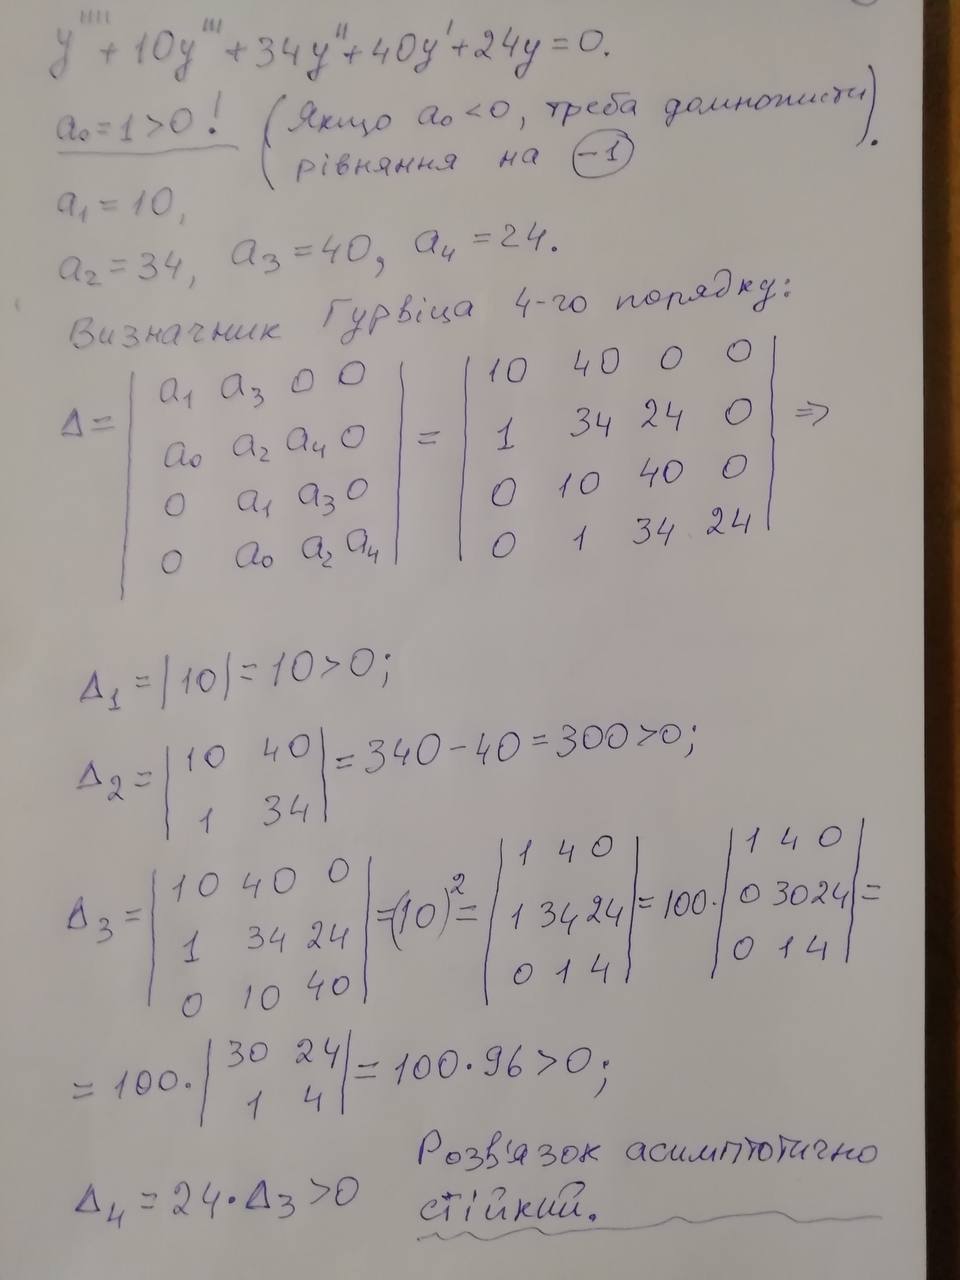 y'''' + 10y''' + 34y'' + 40y' + 24y = 0.
a₀ = 1 > 0 ! (Якщо a₀ < 0, треба домножити
рівняння на (-1)).
a₁ = 10,
a₂ = 34, a₃ = 40, a₄ = 24.
Визначник Гурвіца 4-го порядку:
Δ = | a₁ a₃ 0 0 | = | 10 40 0 0 | ⇒
| a₀ a₂ a₄ 0 | | 1 34 24 0 |
| 0 a₁ a₃ 0 | | 0 10 40 0 |
| 0 a₀ a₂ a₄ | | 0 1 34 24 |
Δ₁ = |10| = 10 > 0;
Δ₂ = | 10 40 | = 340 - 40 = 300 > 0;
| 1 34 |
Δ₃ = | 10 40 0 | = (10)² = | 1 4 0 | = 100 · | 1 4 0 | =
| 1 34 24 | | 1 34 24 | | 0 30 24 |
| 0 10 40 | | 0 1 4 | | 0 1 4 |
= 100 · | 30 24 | = 100 · 96 > 0;
| 1 4 |
Δ₄ = 24 · Δ₃ > 0 Розв'язок асимптотично
стійкий.